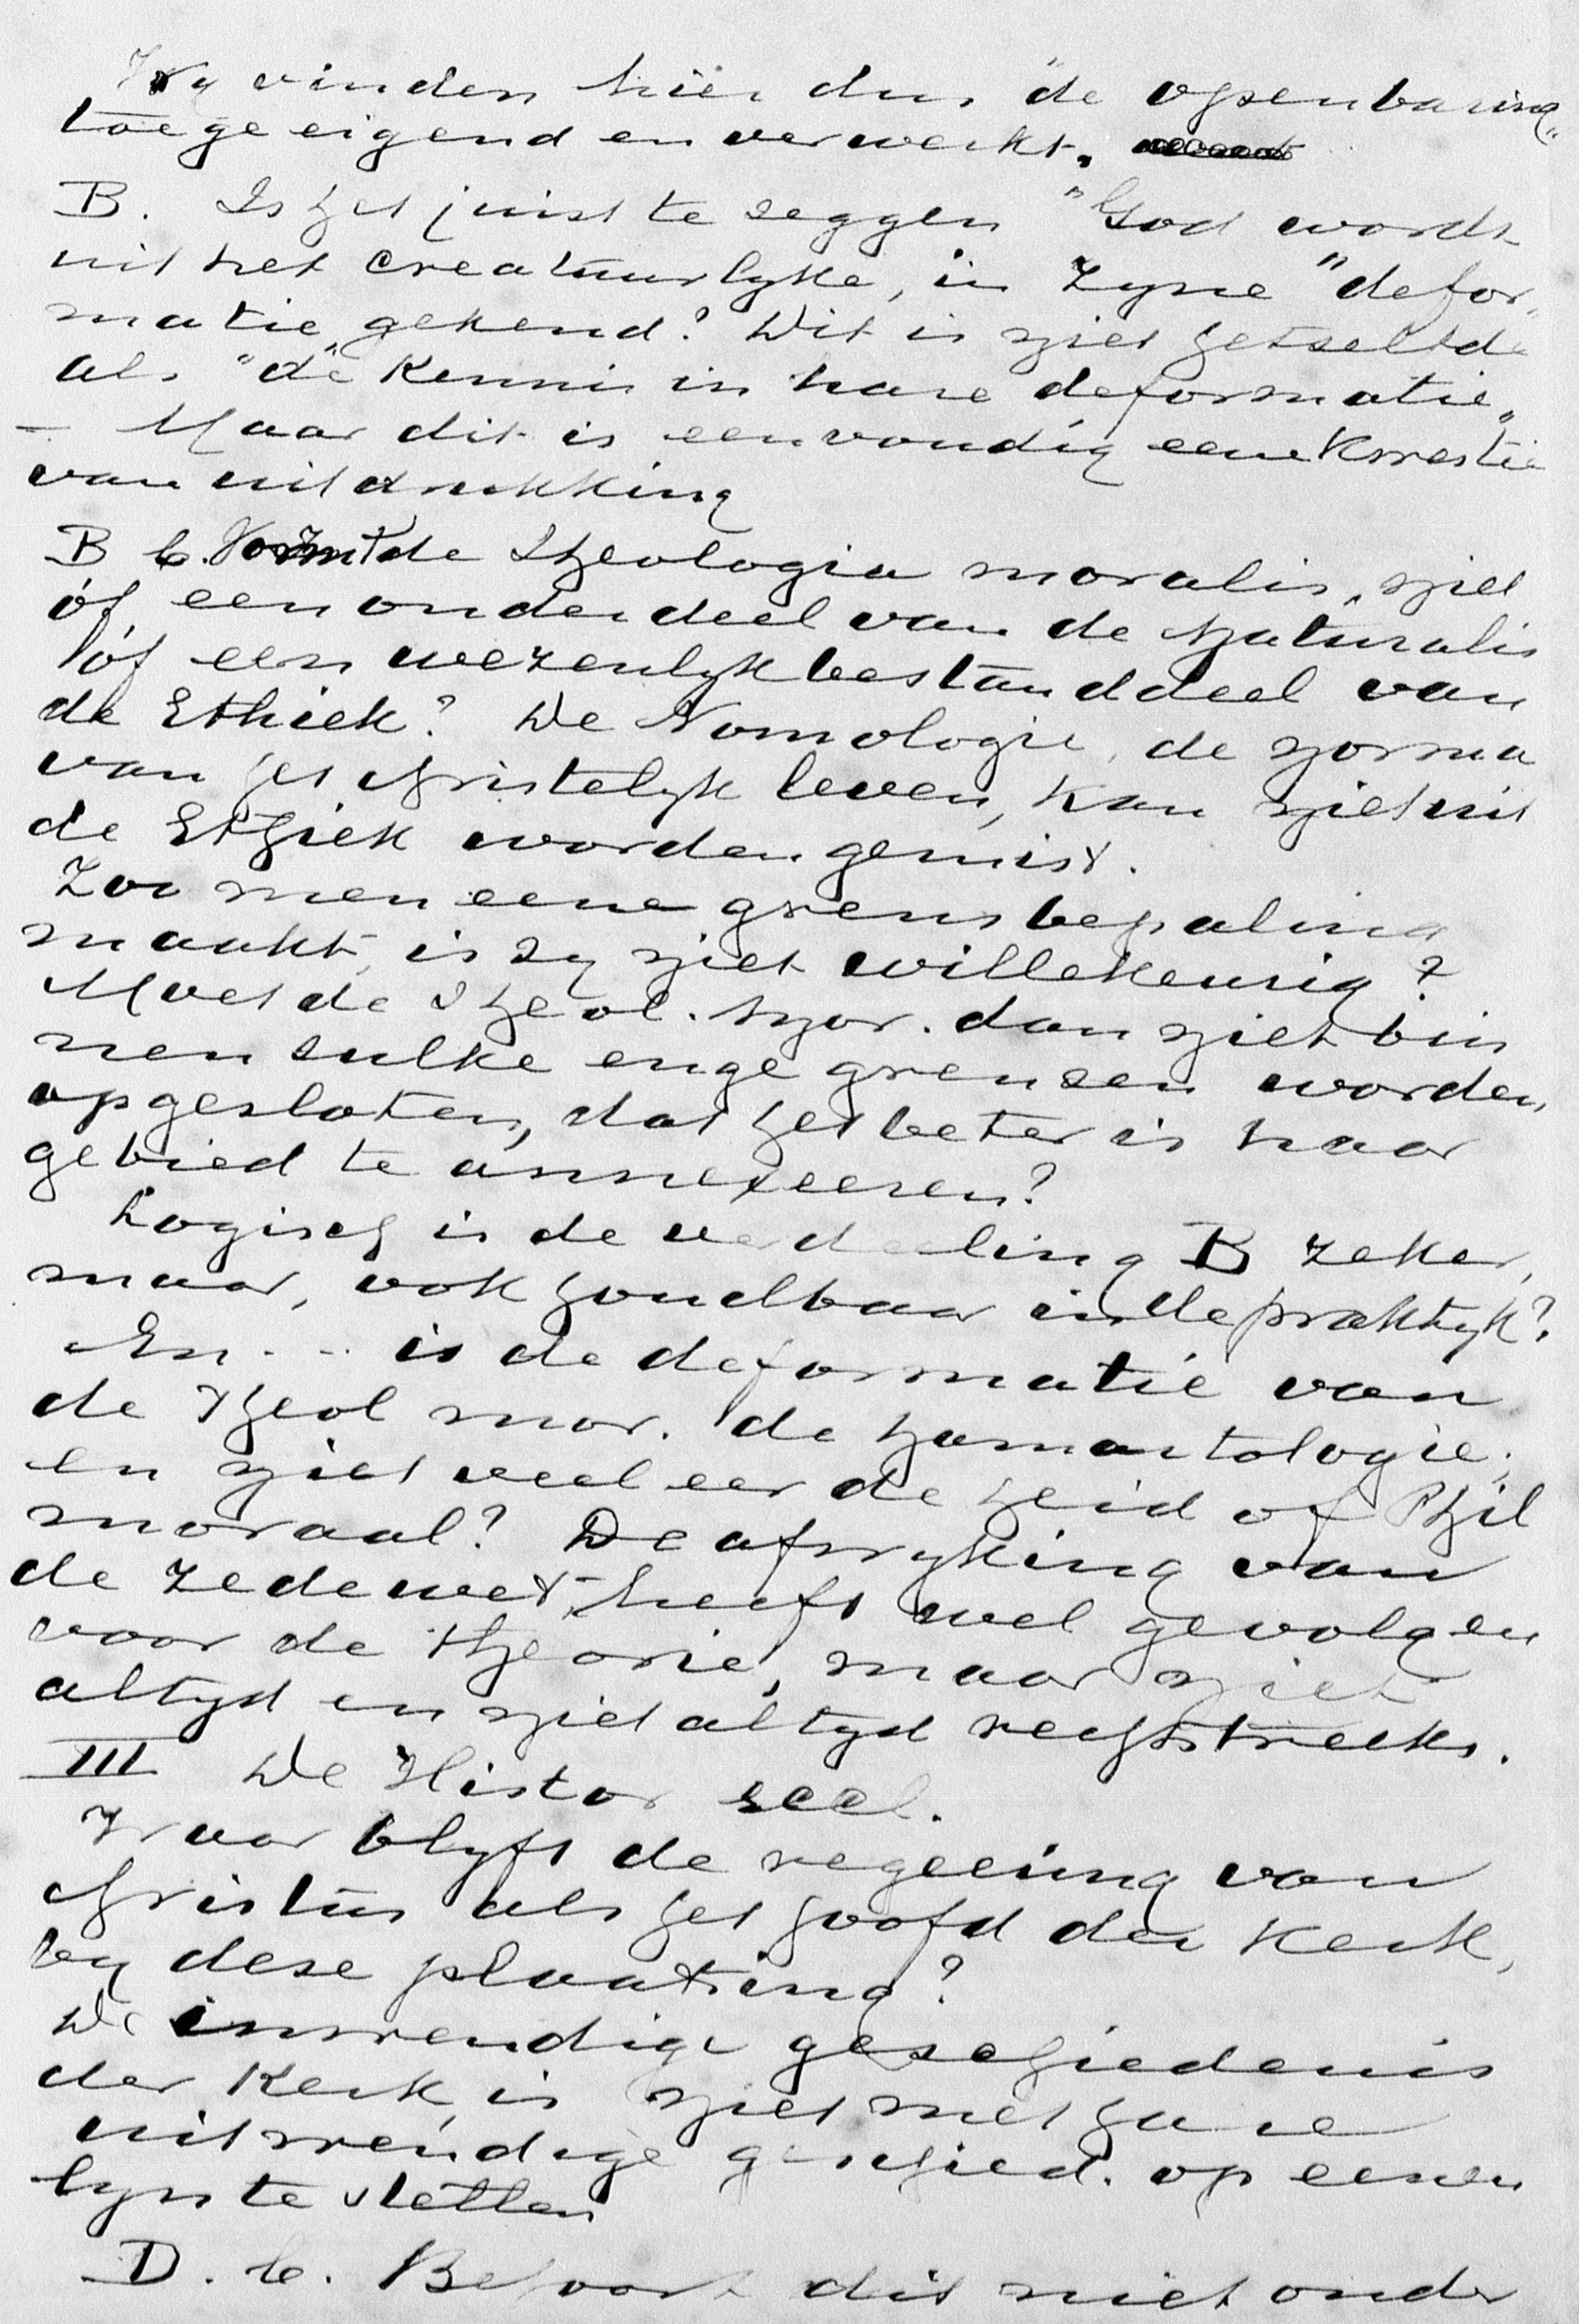 Wy vinden hier dus "de openbaring"
toegeeigend en verwerkt.
B. Is het juist te zeggen "God wordt
uit het creatuurlyke, in Zyne "defor-
matie" gekend? Dit is niet hetzelfde
als "de kennis in hare deformatie"
- Maar dit is eenvoudig eene kwestie
van uitdrukking
B b. Vormt de Theologia moralis, niet
óf een onderdeel van de Naturalis
óf een wezenlyk bestanddeel van
de Ethiek? De Nomologie, de norma
van het christelyk leven, kan niet uit
de Ethiek worden gemist.
Zoo men eene grensbepaling
maakt, is zy niet willekeurig?
Moet de Theol. mor. dan niet bin
nen zulke enge grenzen worden
opgesloten, dat het beter is haar
gebied te annexeeren?
Logisch is de verdeeling B zeker,
maar, ook houdbaar in de praktyk?
En - - is de deformatie van
de Theol mor. de hamartologie,
en niet veel eer de heid of Phil
moraal? De afwyking van
de zedewet, heeft wel gevolgen
voor de theorie, maar niet
altyd en niet altyd rechtstreeks.
III De Histor eccl.
Waar blyft de regeering van
Christus als het hoofd der Kerk,
by deze plaatsing?
De inwendige geschiedenis
der Kerk, is niet met hare
uitwendige geschied. op eenen
lyn te stellen
D. b. Behoort dit niet onder